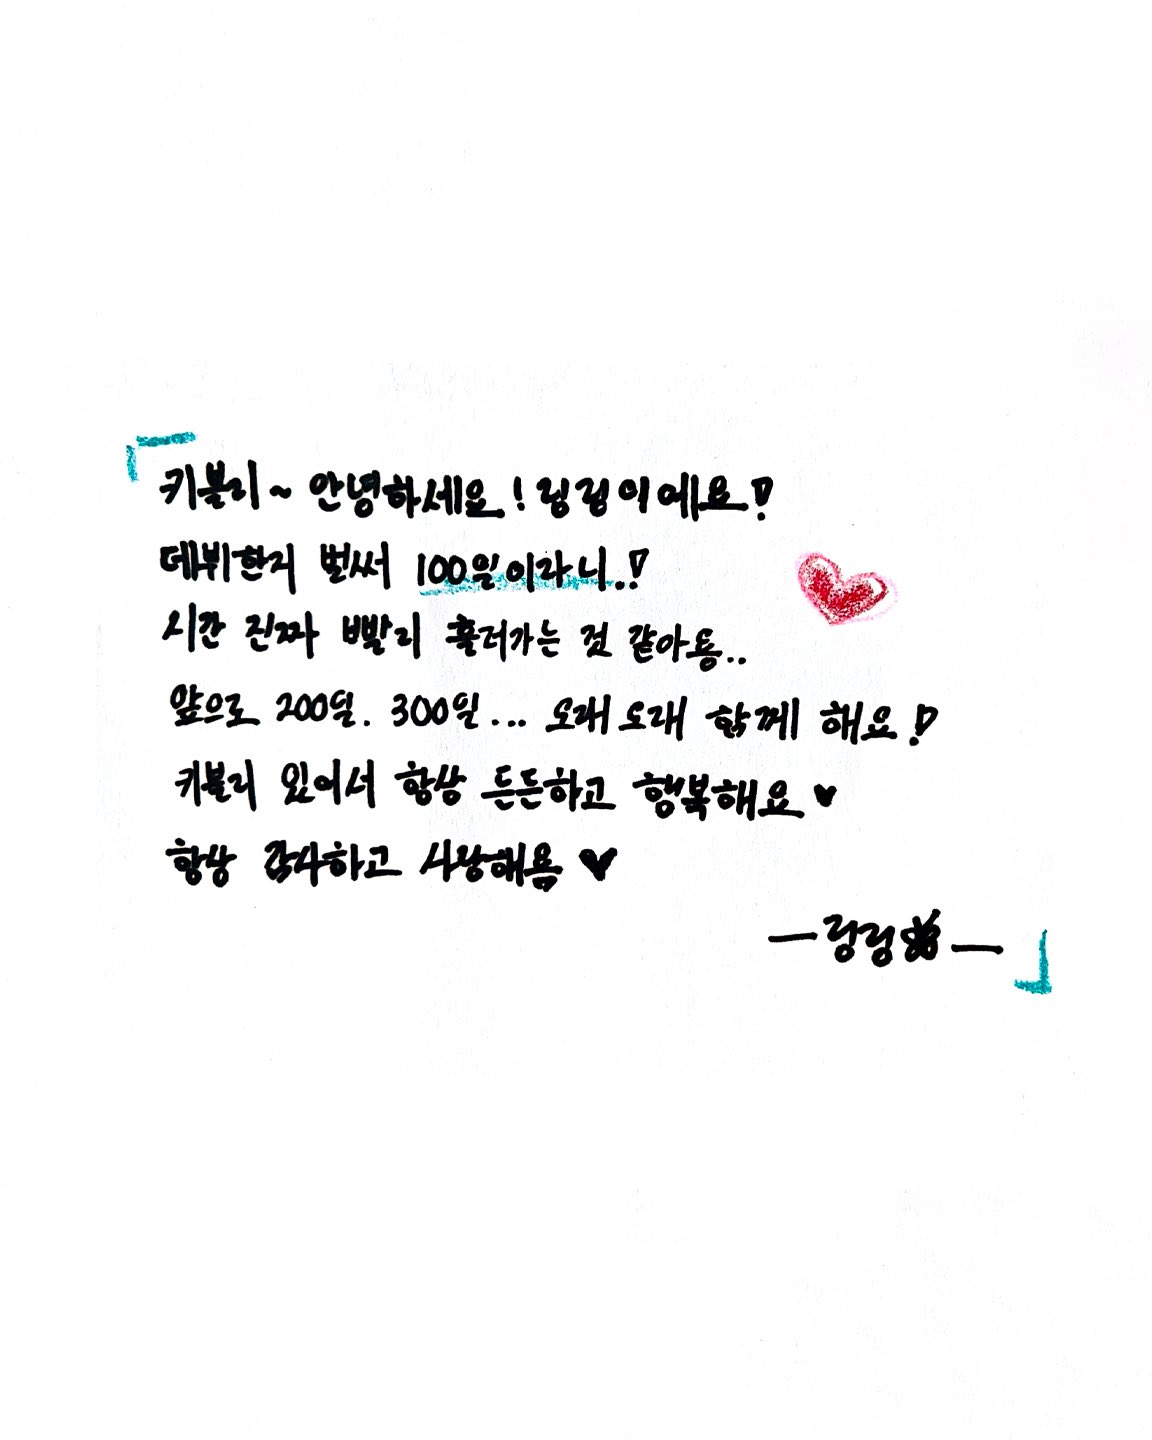 키블리~ 안녕하세요! 링링이에요!
데뷔한지 벌써 100일이라니..!
시간 진짜 빨리 흘러가는 것 같아용..
앞으로 200일. 300일... 오래오래 함께 해요!
키블리 있어서 항상 든든하고 행복해요♥
항상 감사하고 사랑해욤♥
—링링—